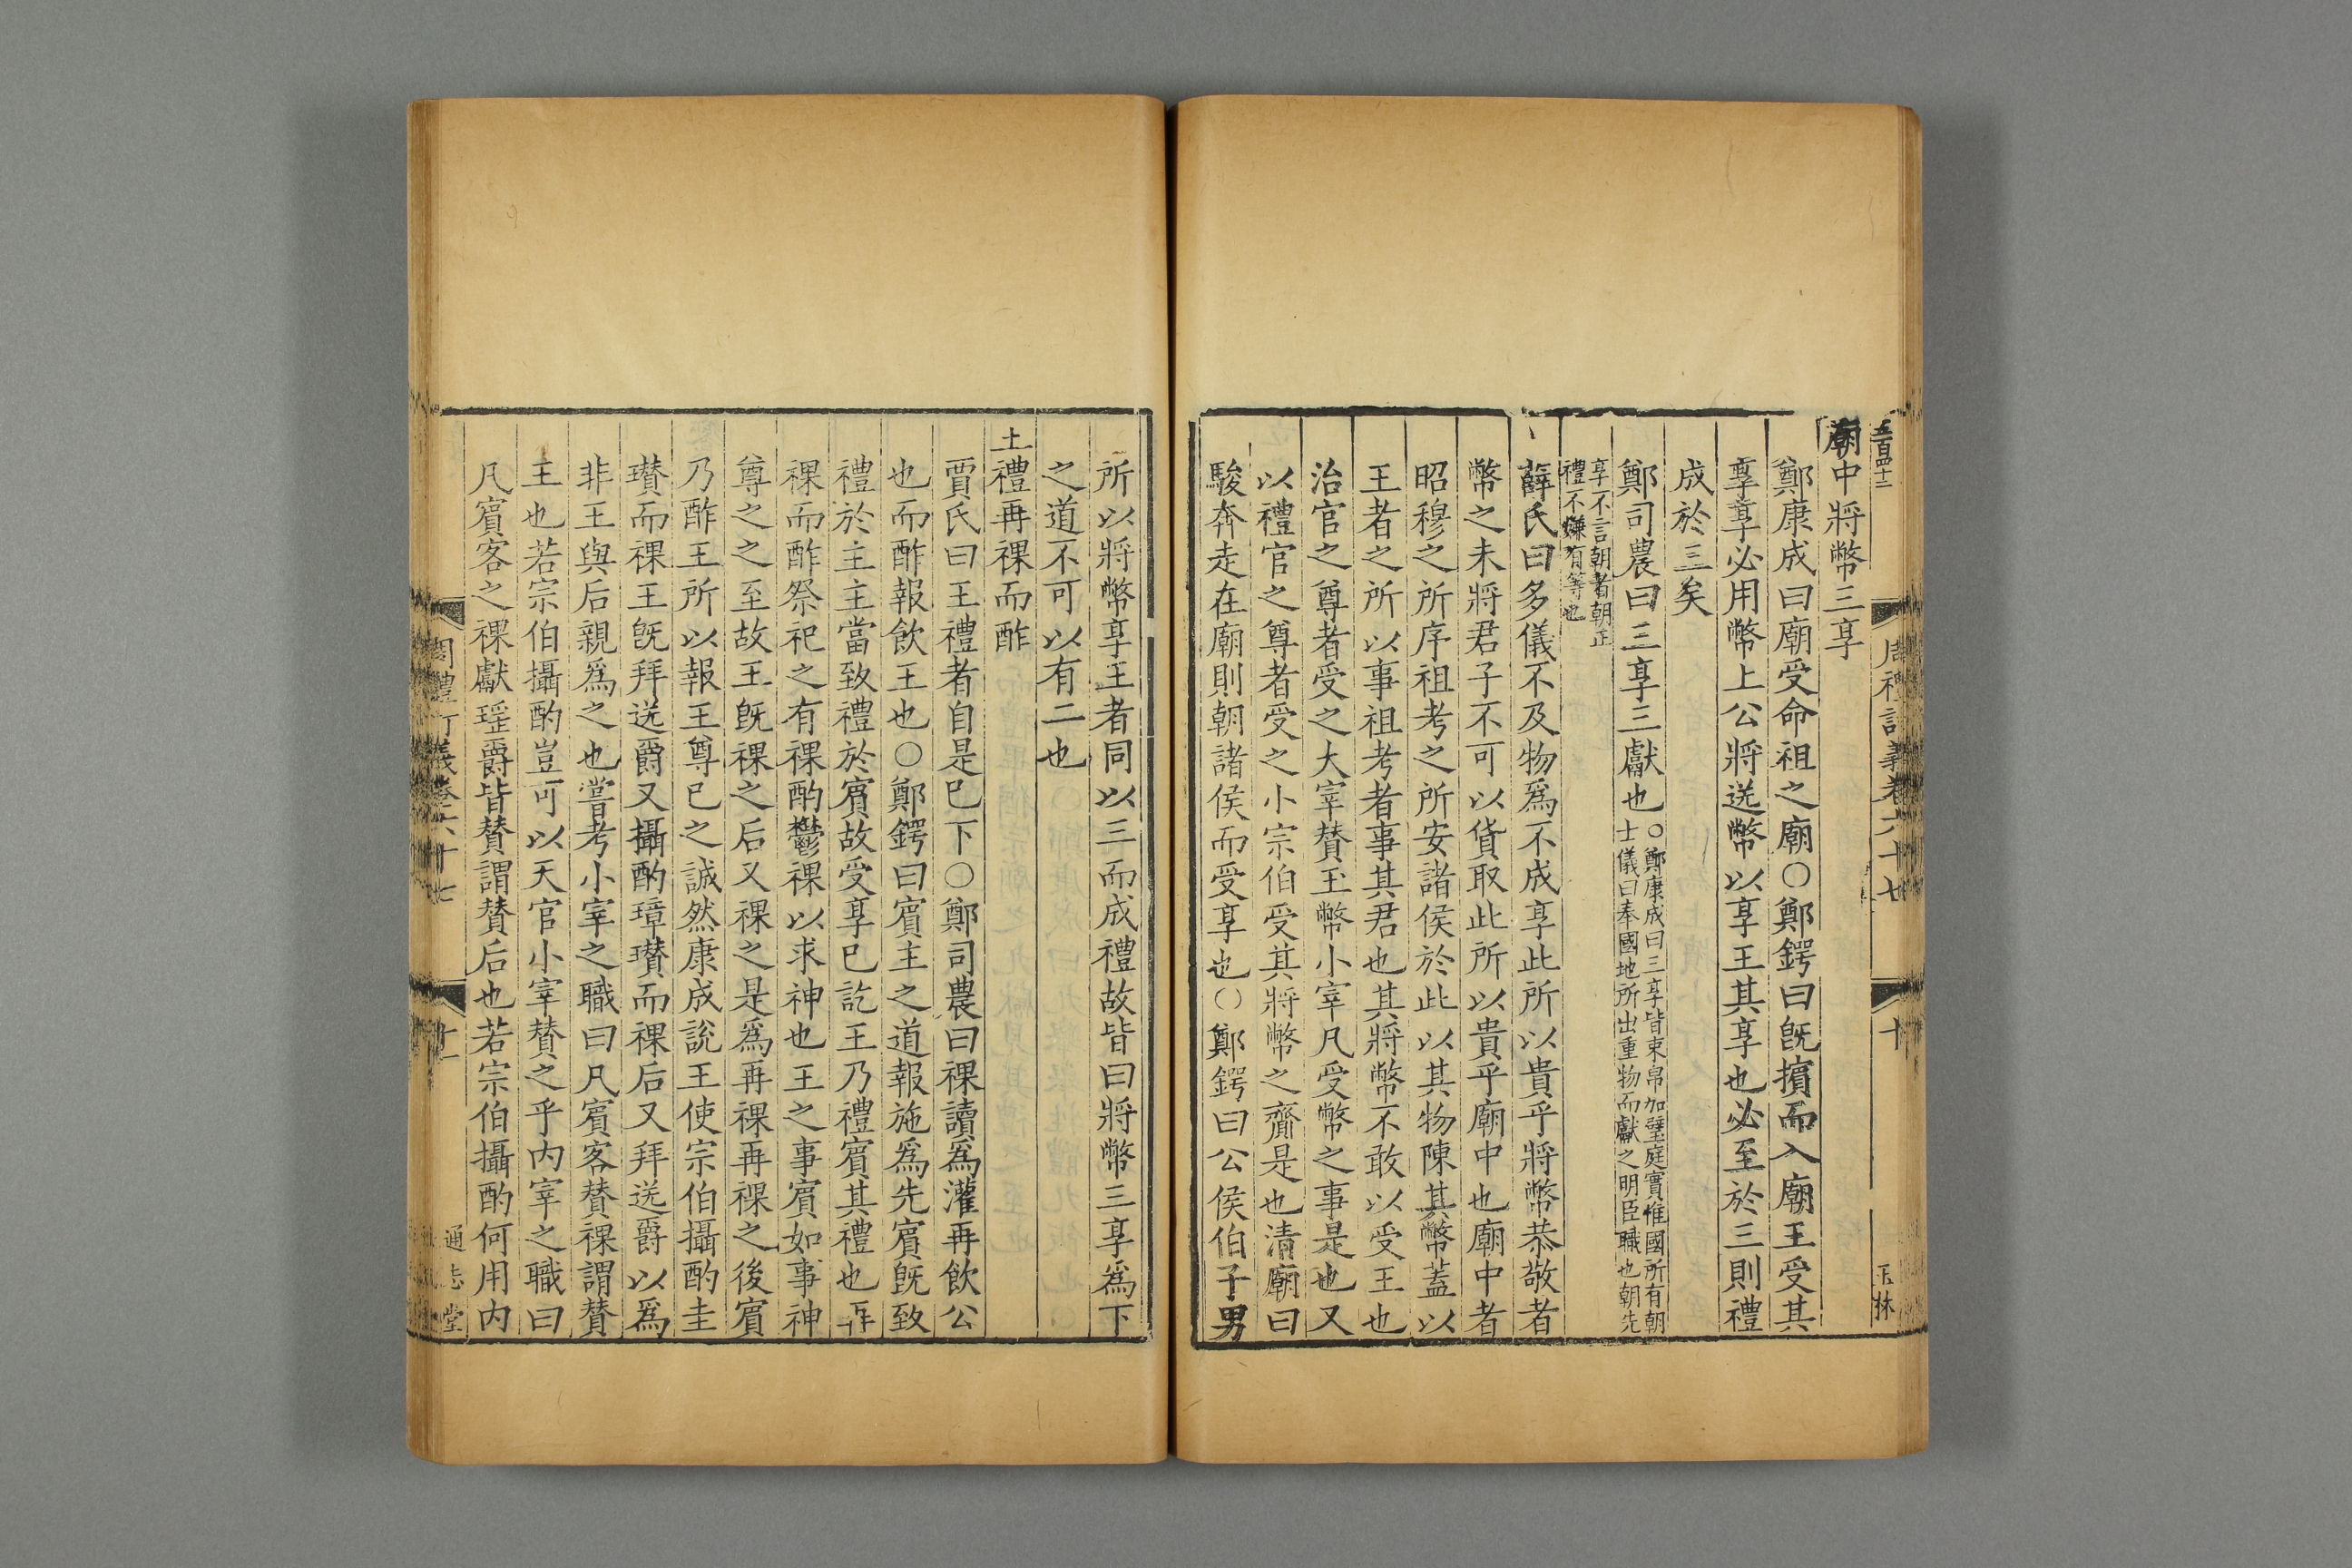 五百四十二
周禮訂義卷六十七
十
玉林
廟中將幣三享
鄭康成曰廟受命祖之廟○鄭鍔曰旣擯而入廟王受其
享享必用幣上公將送幣以享王其享也必至於三則禮
成於三矣
鄭司農曰三享三獻也○鄭康成曰三享皆束帛加璧庭實惟國所有朝
士儀曰奉國地所出重物而獻之明臣職也朝先
享不言朝者朝正
禮不嫌有等也
薛氏曰多儀不及物爲不成享此所以貴乎將幣恭敬者
幣之未將君子不可以貨取此所以貴乎廟中也廟中者
昭穆之所序祖考之所安諸侯於此以其物陳其幣蓋以
王者之所以事祖考者事其君也其將幣不敢以受王也
治官之尊者受之大宰贊玉幣小宰凡受幣之事是也又
以禮官之尊者受之小宗伯受其將幣之齎是也清廟曰
駿奔走在廟則朝諸侯而受享也○鄭鍔曰公侯伯子男
所以將幣享王者同以三而成禮故皆曰將幣三享爲下
之道不可以有二也
王禮再祼而酢
賈氏曰王禮者自是已下○鄭司農曰祼讀爲灌再飲公
也而酢報飲王也○鄭鍔曰賓主之道報施爲先賓旣致
禮於主主當致禮於賓故受享已訖王乃禮賓其禮也再
祼而酢祭祀之有祼酌鬱祼以求神也王之事賓如事神
尊之之至故王旣祼之后又祼之是爲再祼再祼之後賓
乃酢王所以報王尊已之誠然康成說王使宗伯攝酌圭
瓚而祼王旣拜送爵又攝酌璋瓚而祼后又拜送爵以爲
非王與后親爲之也嘗考小宰之職曰凡賓客贊祼謂贊
王也若宗伯攝酌豈可以天官小宰贊之乎內宰之職曰
凡賓客之祼獻瑤爵皆贊謂贊后也若宗伯攝酌何用內
周禮訂義卷六十七
十一
通志堂